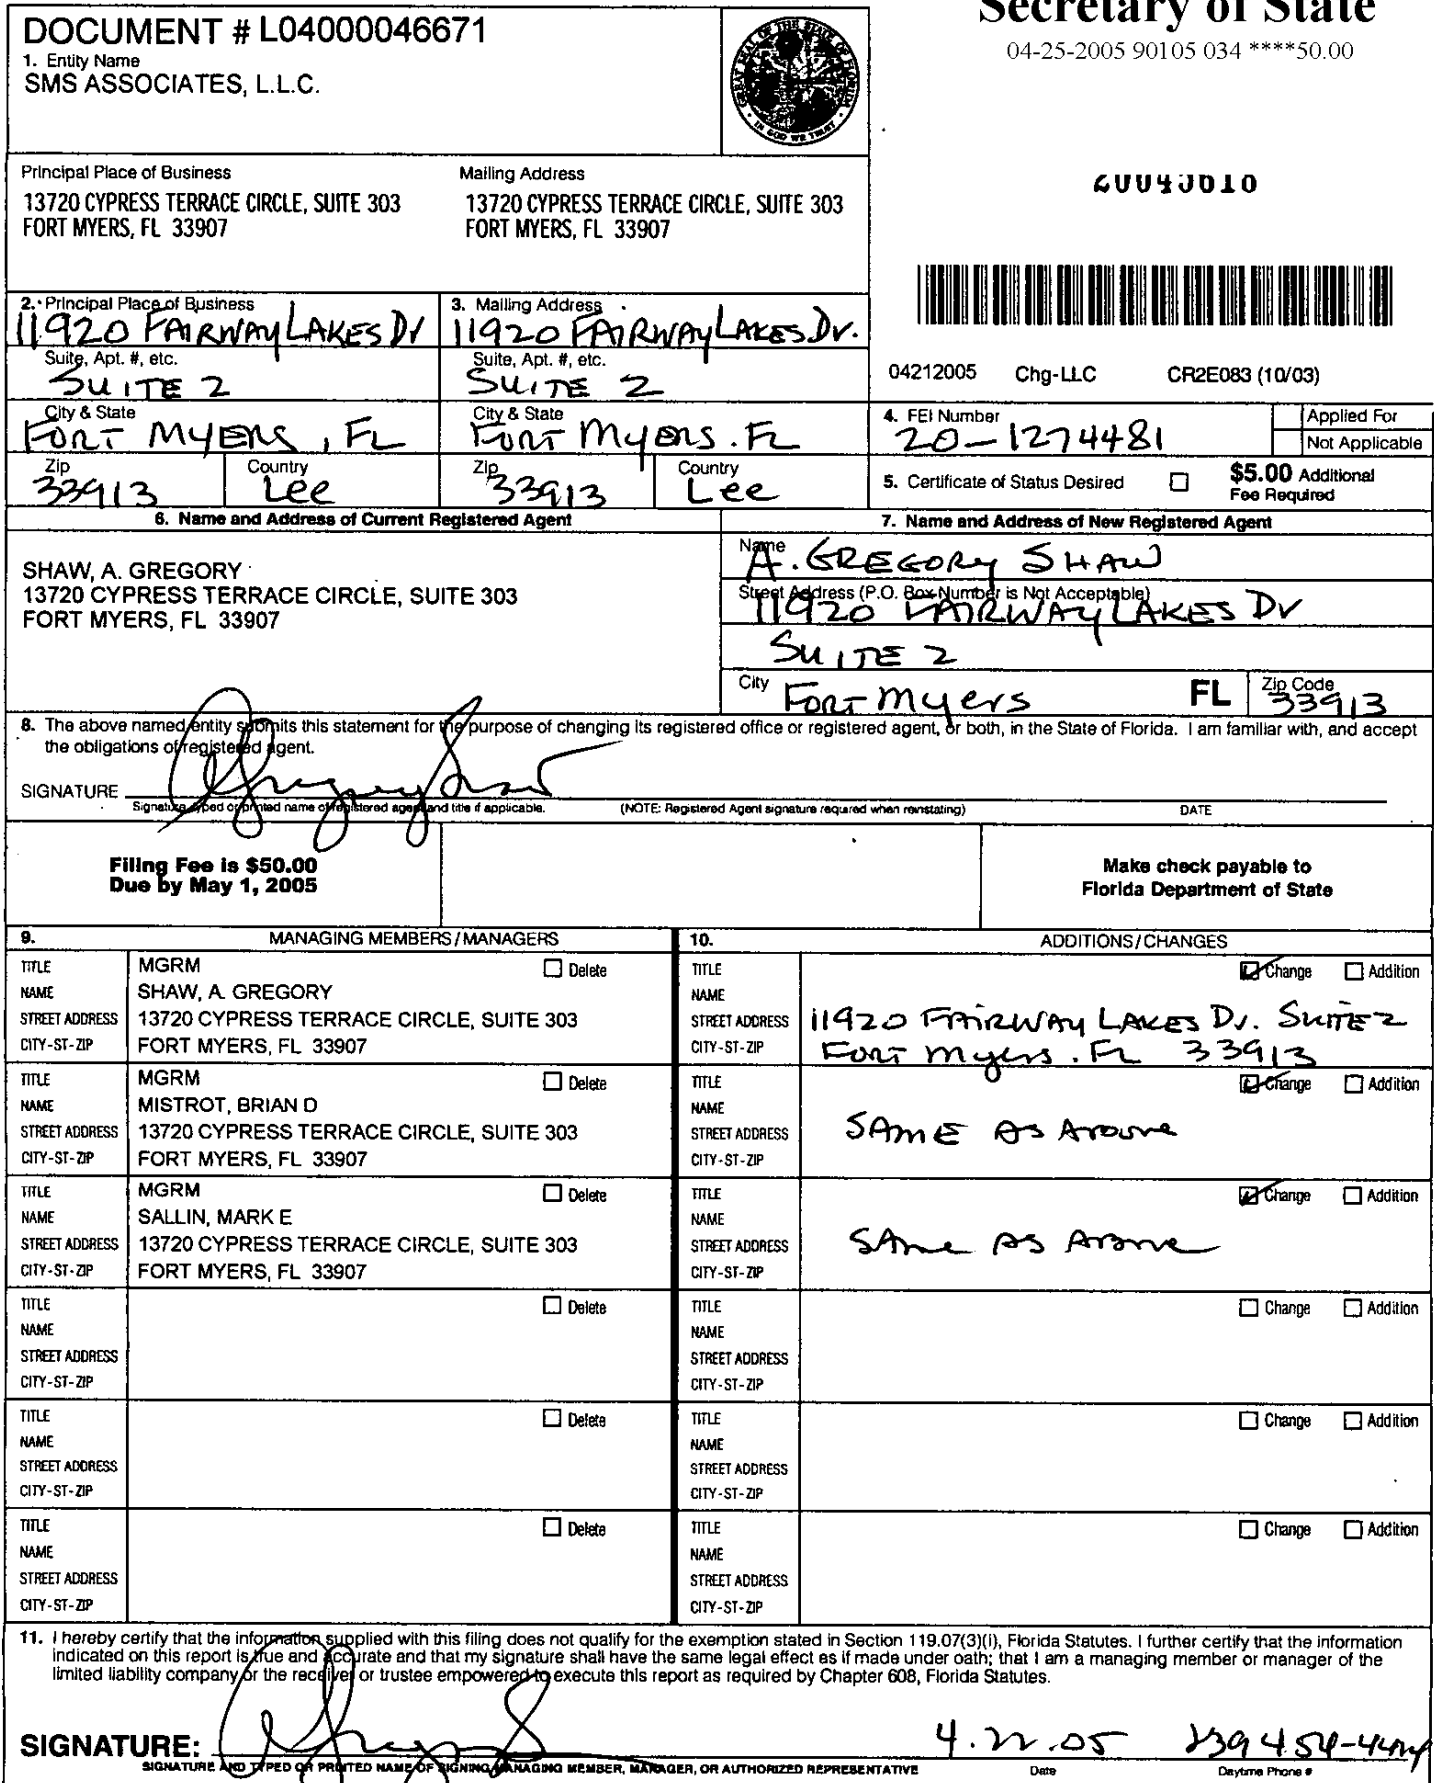 Secretary of State
04-25-2005 90105 034 ****50.00
DOCUMENT # L04000046671
1. Entity Name
SMS ASSOCIATES, L.L.C.
GREAT SEAL OF THE STATE OF FLORIDA
IN GOD WE TRUST
Principal Place of Business
13720 CYPRESS TERRACE CIRCLE, SUITE 303
FORT MYERS, FL 33907
Mailing Address
13720 CYPRESS TERRACE CIRCLE, SUITE 303
FORT MYERS, FL 33907
2. Principal Place of Business
11920 FAIRWAY LAKES Dr
Suite, Apt. #, etc.
SUITE 2
City & State
FORT MYERS, FL
Zip
33913
Country
Lee
3. Mailing Address
11920 FAIRWAY LAKES Dr.
Suite, Apt. #, etc.
SUITE 2
City & State
FORT MYERS. FL
Zip
33913
Country
Lee
04212005 Chg-LLC CR2E083 (10/03)
4. FEI Number
20-1274481
Applied For
Not Applicable
5. Certificate of Status Desired
$5.00 Additional
Fee Required
6. Name and Address of Current Registered Agent
SHAW, A. GREGORY
13720 CYPRESS TERRACE CIRCLE, SUITE 303
FORT MYERS, FL 33907
7. Name and Address of New Registered Agent
Name
A. GREGORY SHAW
Street Address (P.O. Box Number is Not Acceptable)
11920 FAIRWAY LAKES Dr
SUITE 2
City
FORT Myers
FL
Zip Code
33913
8. The above named entity submits this statement for the purpose of changing its registered office or registered agent, or both, in the State of Florida. I am familiar with, and accept
the obligations of registered agent.
SIGNATURE
Signature, typed or printed name of registered agent and title if applicable. (NOTE: Registered Agent signature required when reinstating) DATE
Filing Fee is $50.00
Due by May 1, 2005
Make check payable to
Florida Department of State
9. MANAGING MEMBERS/MANAGERS
TITLE MGRM Delete
NAME SHAW, A. GREGORY
STREET ADDRESS 13720 CYPRESS TERRACE CIRCLE, SUITE 303
CITY-ST-ZIP FORT MYERS, FL 33907
TITLE MGRM Delete
NAME MISTROT, BRIAN D
STREET ADDRESS 13720 CYPRESS TERRACE CIRCLE, SUITE 303
CITY-ST-ZIP FORT MYERS, FL 33907
TITLE MGRM Delete
NAME SALLIN, MARK E
STREET ADDRESS 13720 CYPRESS TERRACE CIRCLE, SUITE 303
CITY-ST-ZIP FORT MYERS, FL 33907
TITLE Delete
NAME
STREET ADDRESS
CITY-ST-ZIP
TITLE Delete
NAME
STREET ADDRESS
CITY-ST-ZIP
TITLE Delete
NAME
STREET ADDRESS
CITY-ST-ZIP
10. ADDITIONS/CHANGES
TITLE Change Addition
NAME
STREET ADDRESS 11920 FAIRWAY LAKES Dr. SUITE 2
CITY-ST-ZIP Fort Myers. FL 33913
TITLE Change Addition
NAME
STREET ADDRESS SAME AS ABOVE
CITY-ST-ZIP
TITLE Change Addition
NAME
STREET ADDRESS SAME AS ABOVE
CITY-ST-ZIP
TITLE Change Addition
NAME
STREET ADDRESS
CITY-ST-ZIP
TITLE Change Addition
NAME
STREET ADDRESS
CITY-ST-ZIP
TITLE Change Addition
NAME
STREET ADDRESS
CITY-ST-ZIP
11. I hereby certify that the information supplied with this filing does not qualify for the exemption stated in Section 119.07(3)(i), Florida Statutes. I further certify that the information
indicated on this report is true and accurate and that my signature shall have the same legal effect as if made under oath; that I am a managing member or manager of the
limited liability company or the receiver or trustee empowered to execute this report as required by Chapter 608, Florida Statutes.
SIGNATURE: 4.22.05 239 454-
SIGNATURE AND TYPED OR PRINTED NAME OF SIGNING MANAGING MEMBER, MANAGER, OR AUTHORIZED REPRESENTATIVE Date Daytime Phone #